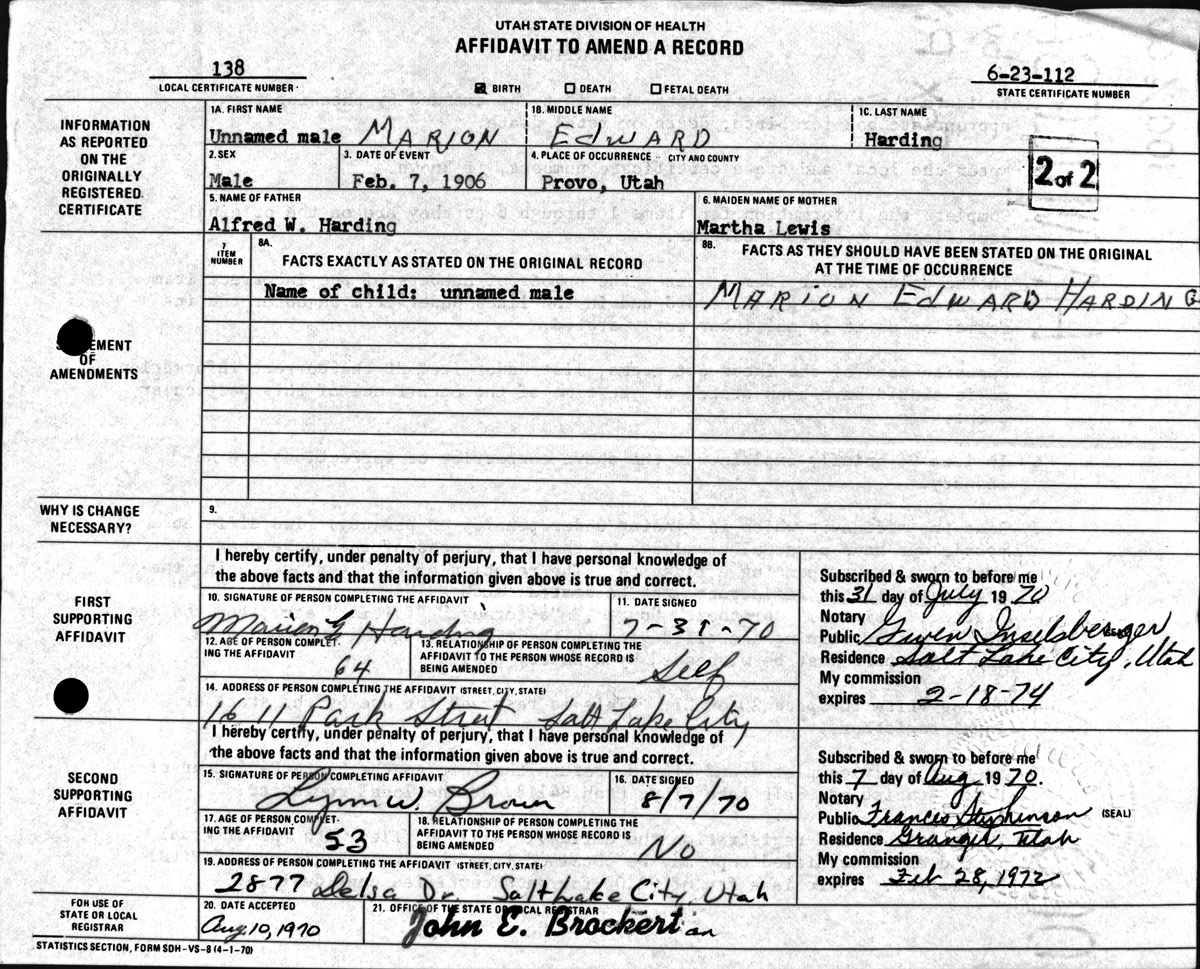 UTAH STATE DIVISION OF HEALTH
AFFIDAVIT TO AMEND A RECORD
138
LOCAL CERTIFICATE NUMBER
BIRTH DEATH FETAL DEATH
6-23-112
STATE CERTIFICATE NUMBER
INFORMATION AS REPORTED ON THE ORIGINALLY REGISTERED CERTIFICATE
1A. FIRST NAME 1B. MIDDLE NAME 1C. LAST NAME
Unnamed male MARION EDWARD Harding
2. SEX 3. DATE OF EVENT 4. PLACE OF OCCURRENCE - CITY AND COUNTY
Male Feb. 7, 1906 Provo, Utah
2 of 2
5. NAME OF FATHER 6. MAIDEN NAME OF MOTHER
Alfred W. Harding Martha Lewis
7 ITEM NUMBER
8A. FACTS EXACTLY AS STATED ON THE ORIGINAL RECORD
8B. FACTS AS THEY SHOULD HAVE BEEN STATED ON THE ORIGINAL
AT THE TIME OF OCCURRENCE
Name of child: unnamed male MARION EDWARD HARDING
OF
AMENDMENTS
WHY IS CHANGE NECESSARY?
9.
FIRST SUPPORTING AFFIDAVIT
I hereby certify, under penalty of perjury, that I have personal knowledge of
the above facts and that the information given above is true and correct.
10. SIGNATURE OF PERSON COMPLETING THE AFFIDAVIT 11. DATE SIGNED
Harding 7-31-70
12. AGE OF PERSON COMPLETING THE AFFIDAVIT
64
13. RELATIONSHIP OF PERSON COMPLETING THE AFFIDAVIT TO THE PERSON WHOSE RECORD IS BEING AMENDED
Self
14. ADDRESS OF PERSON COMPLETING THE AFFIDAVIT (STREET, CITY, STATE)
1611 Park Street Salt Lake City
Subscribed & sworn to before me
this 31 day of July 1970
Notary
Public Gwen Inselsberger
Residence Salt Lake City, Utah
My commission
expires 2-18-74
SECOND SUPPORTING AFFIDAVIT
I hereby certify, under penalty of perjury, that I have personal knowledge of
the above facts and that the information given above is true and correct.
15. SIGNATURE OF PERSON COMPLETING AFFIDAVIT 16. DATE SIGNED
Lynn W. Brown 8/7/70
17. AGE OF PERSON COMPLETING THE AFFIDAVIT
53
18. RELATIONSHIP OF PERSON COMPLETING THE AFFIDAVIT TO THE PERSON WHOSE RECORD IS BEING AMENDED
No
19. ADDRESS OF PERSON COMPLETING THE AFFIDAVIT (STREET, CITY, STATE)
2877 Delsa Dr. Salt Lake City, Utah
Subscribed & sworn to before me
this 7 day of Aug 1970.
Notary
Public Frances Stephenson (SEAL)
Residence Granger, Utah
My commission
expires Feb 28, 1972
FOR USE OF STATE OR LOCAL REGISTRAR
20. DATE ACCEPTED 21. OFFICE OF THE STATE OR LOCAL REGISTRAR
Aug 10, 1970 John E. Brockert
STATISTICS SECTION, FORM SDH-VS-8 (4-1-70)